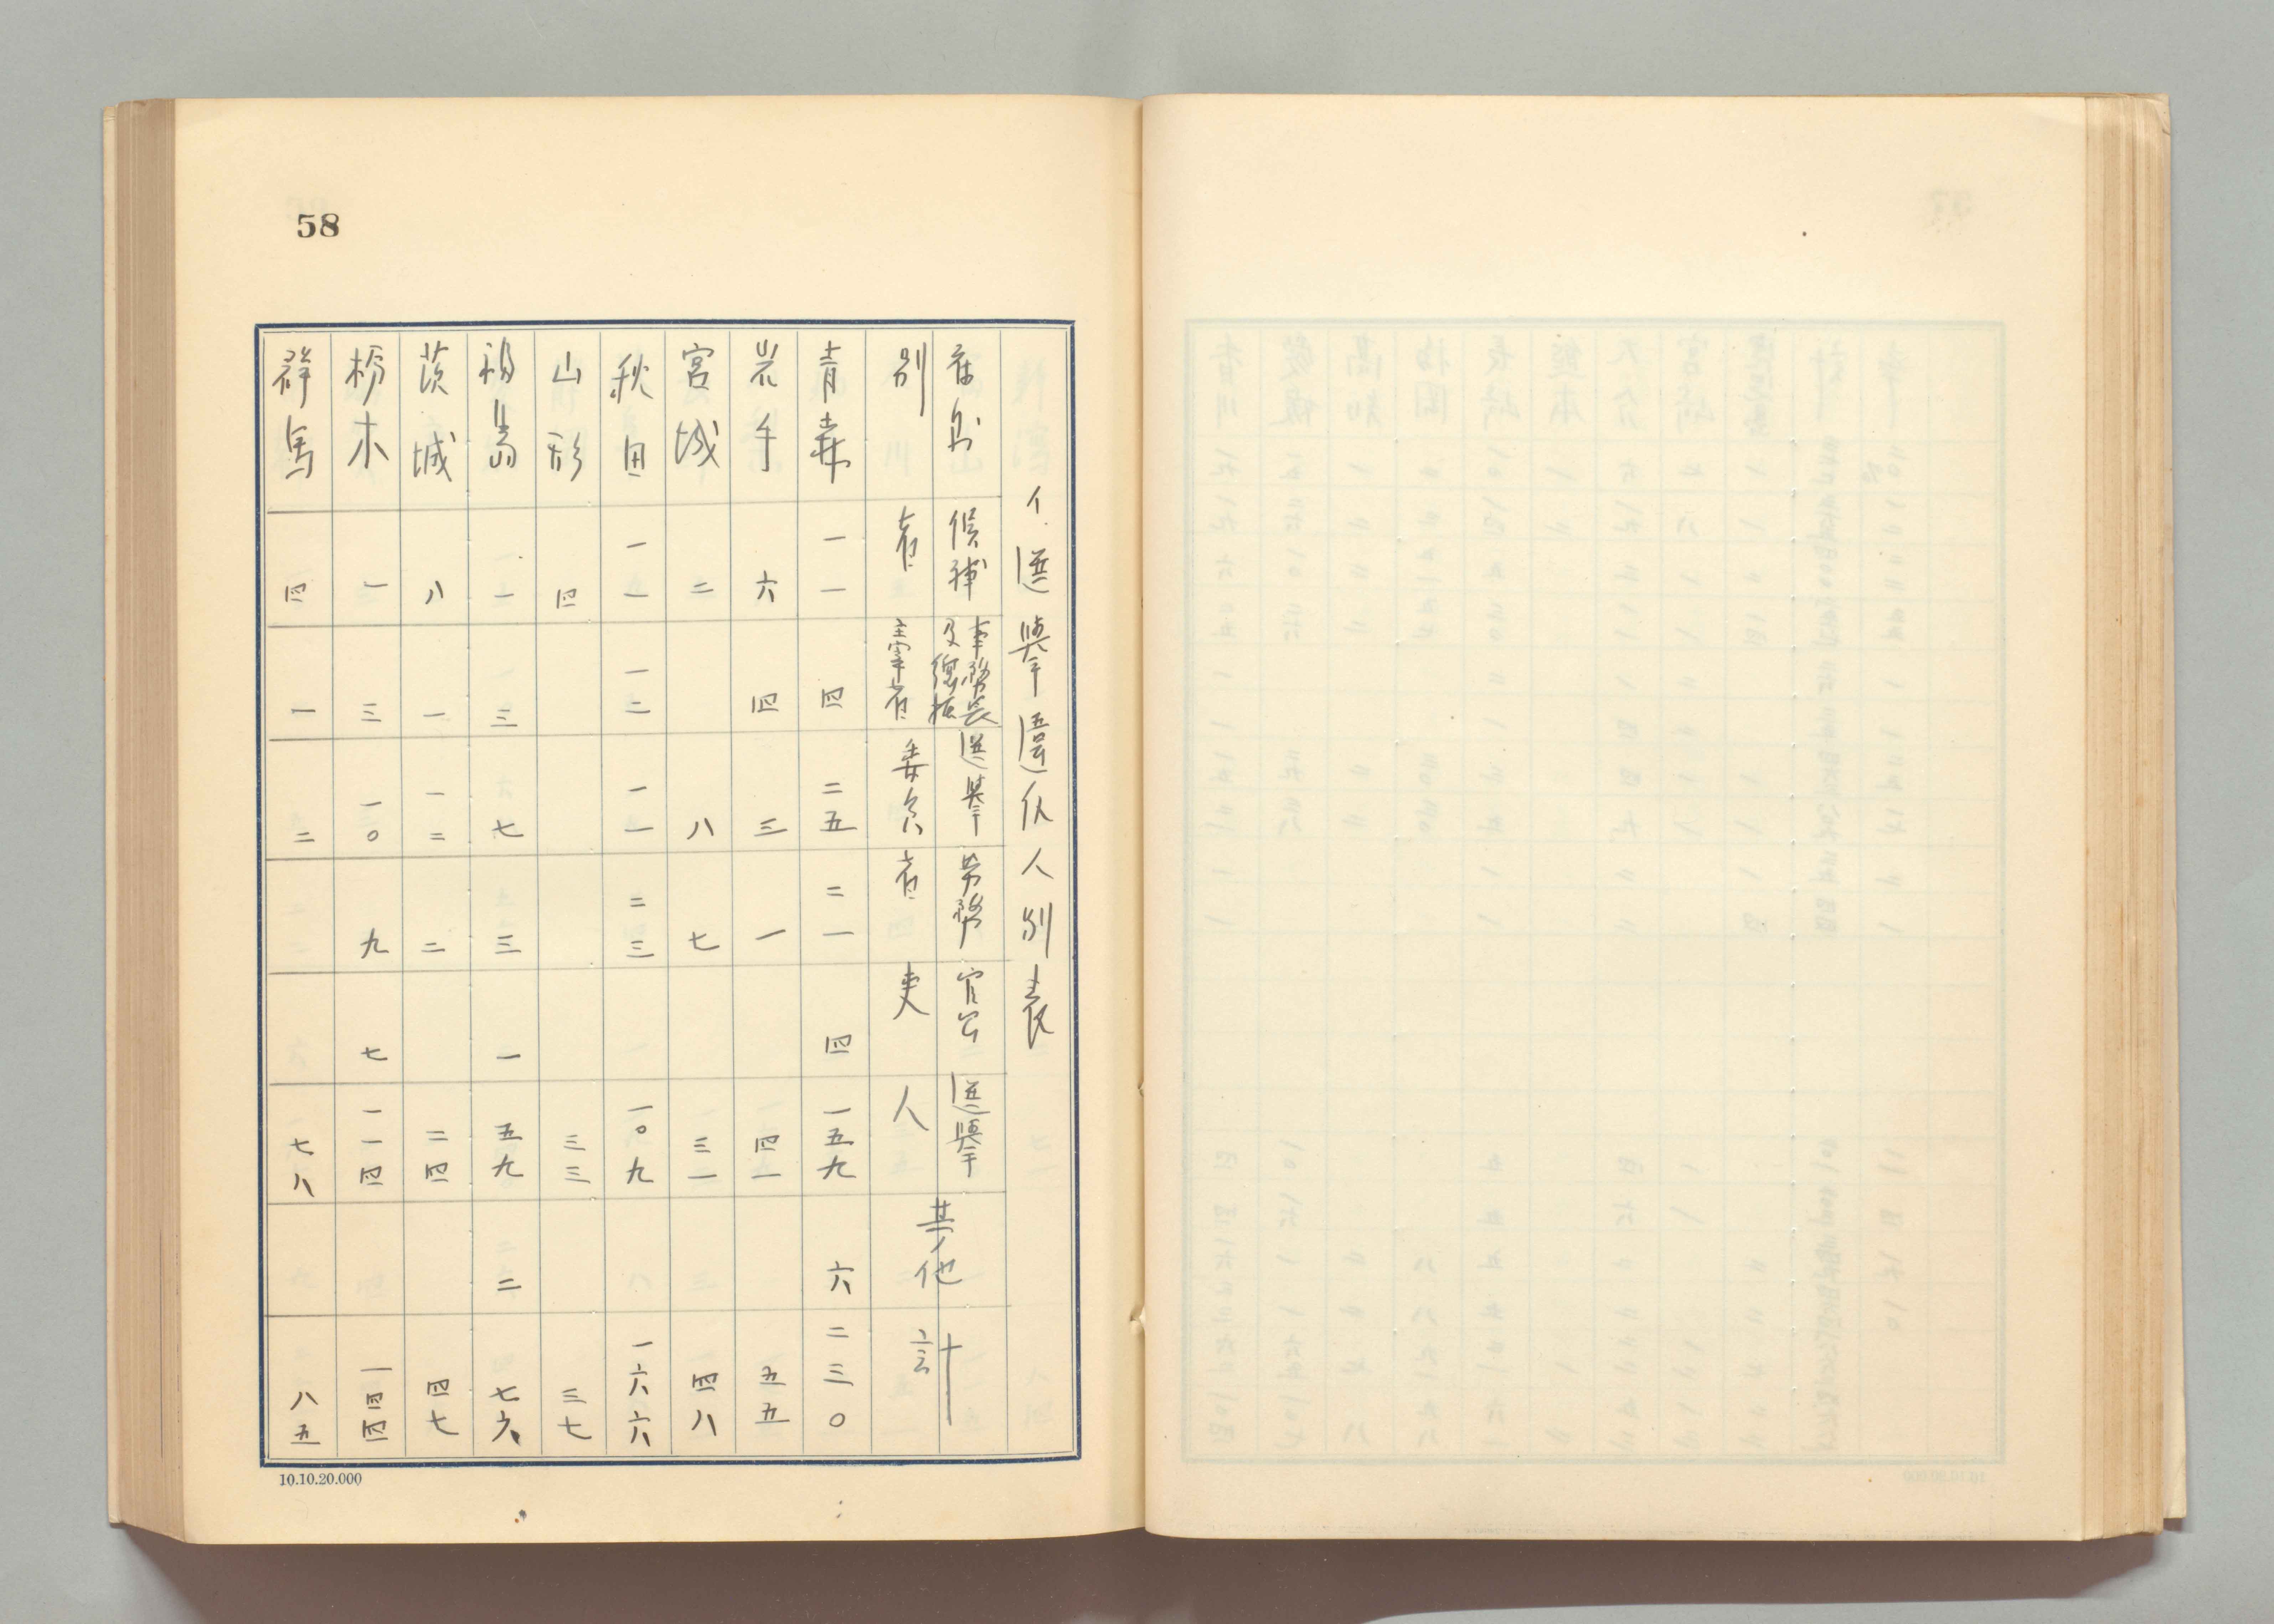 58
イ、選擧違反人別表
府縣別
候補者
事務長及總括主宰者
選擧委員
労務者
官公吏
選擧人
其他
計
青森 一一 四 二五 二一 四 一五九 六 二三〇
岩手 六 四 三 一 四一 五五
宮城 二 八 七 三一 四八
秋田 一一 一二 一一 二三 一〇九 一六六
山形 四 三三 三七
福島 一 三 七 三 一 五九 二 七六
茨城 八 一 一二 二 二四 四七
栃木 一 三 一〇 九 七 一一四 一四四
群馬 四 一 二 七八 八五
10.10.20.000